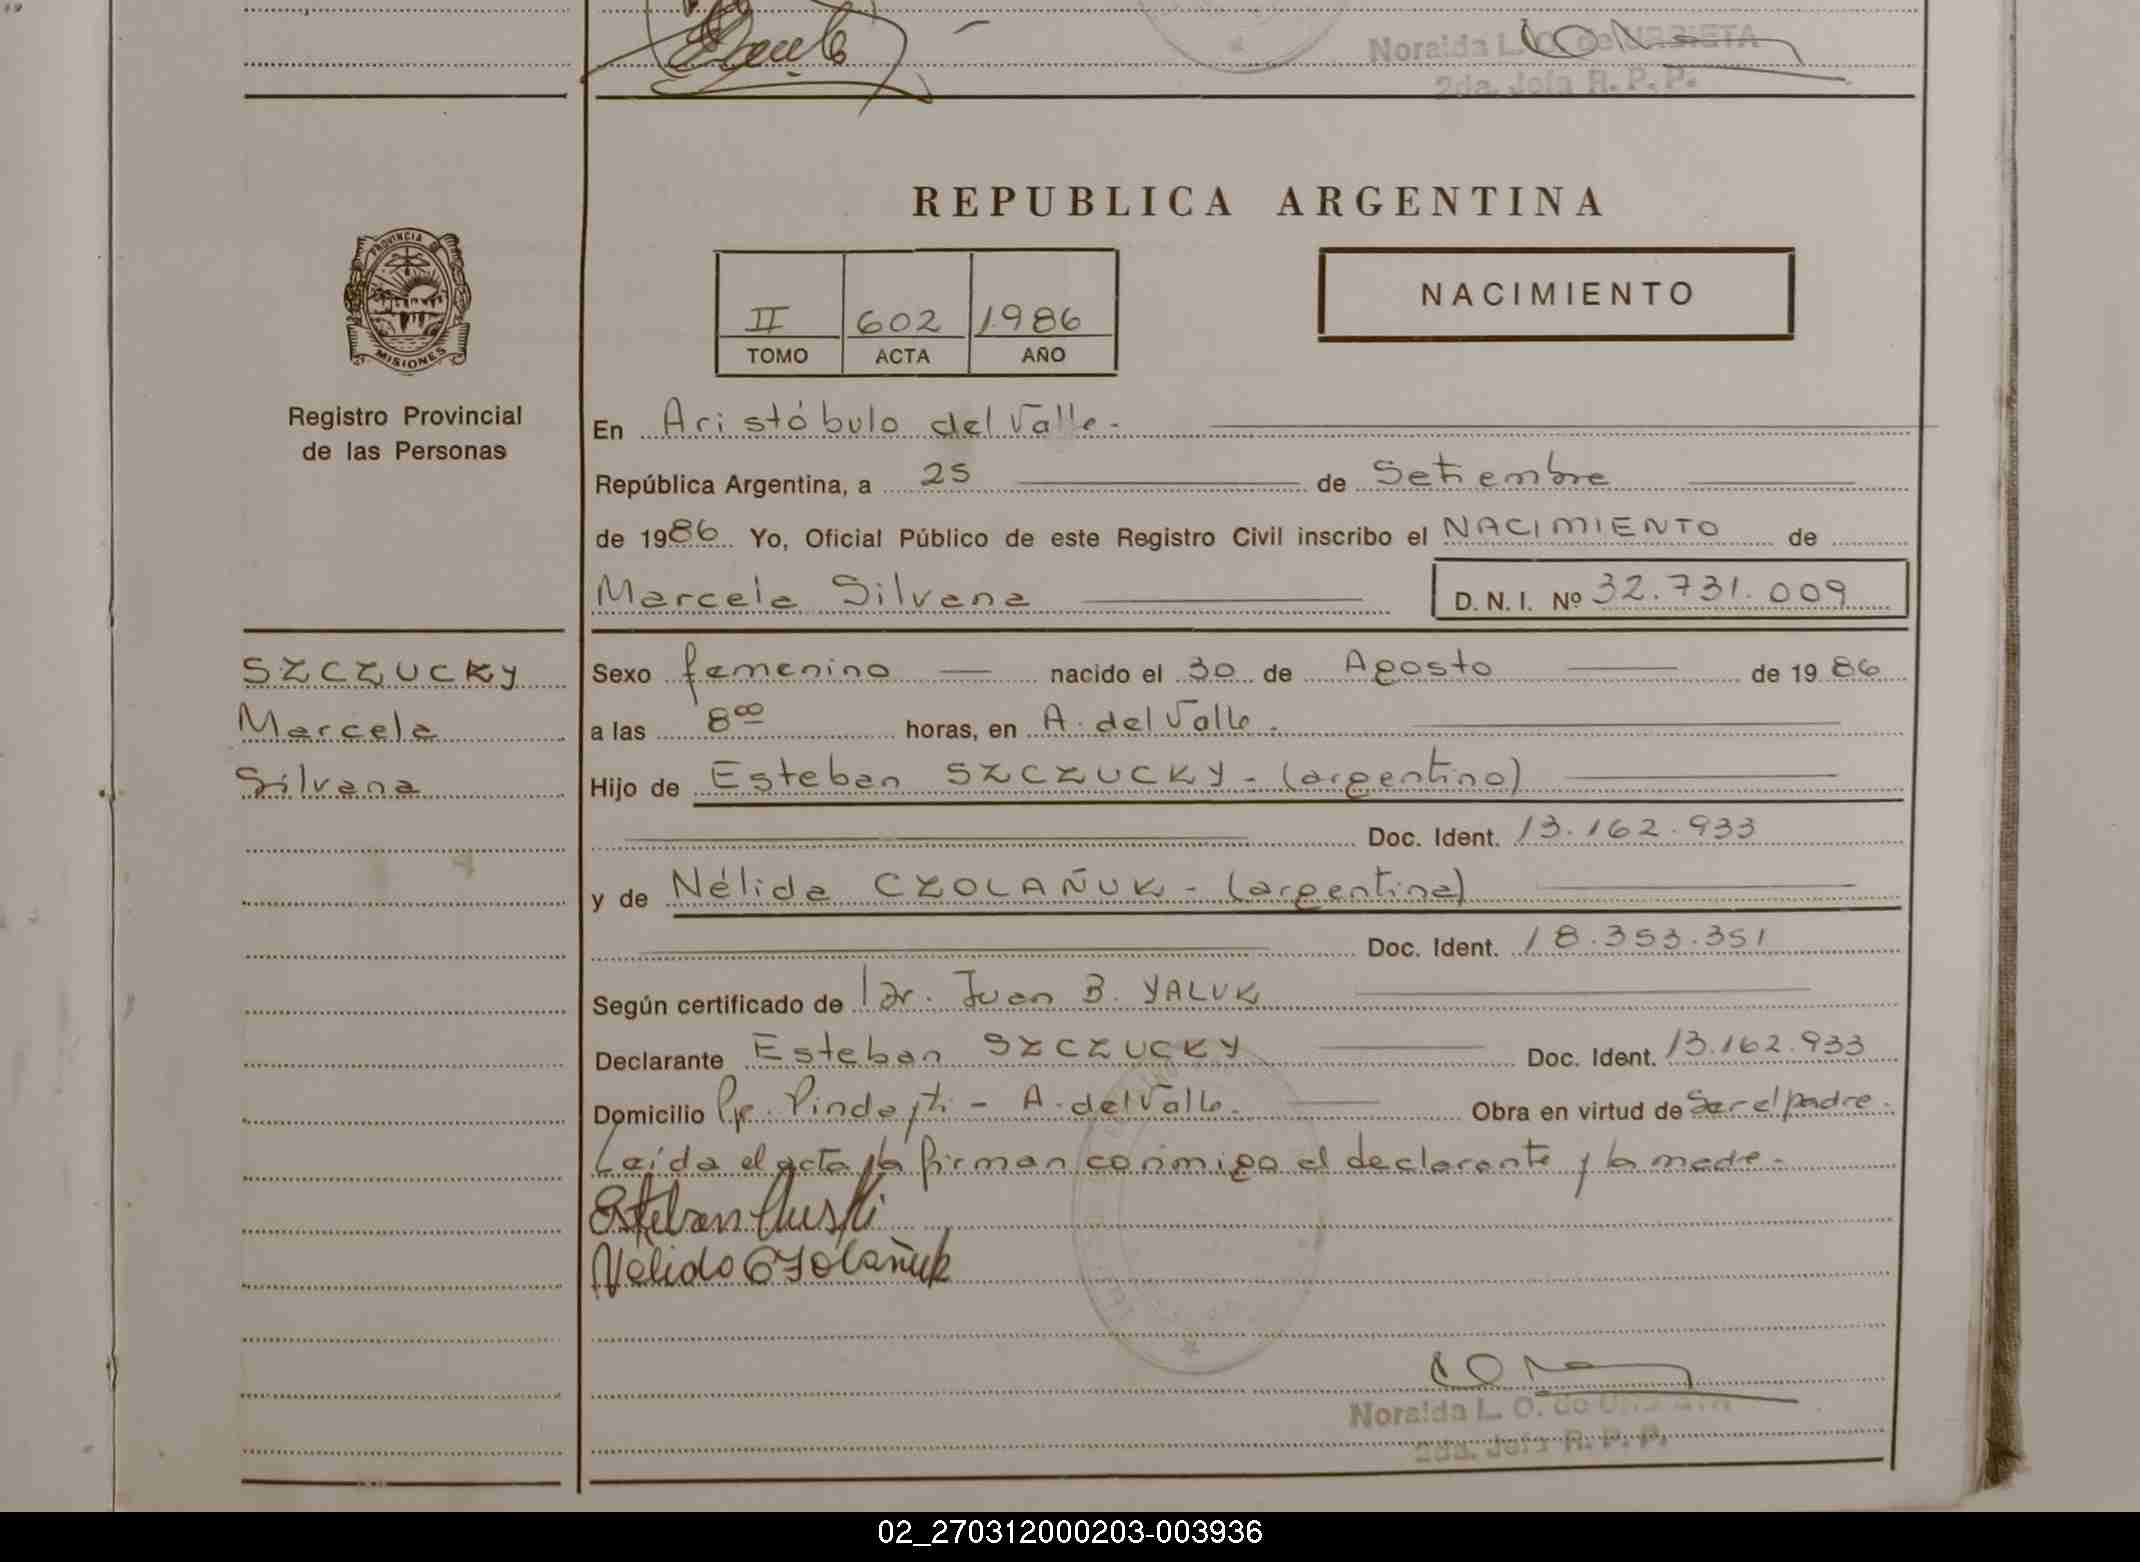 Noraida L. O. de URBIETA
2da. Jefa R. P. P.
REPUBLICA ARGENTINA
PROVINCIA DE
MISIONES
NACIMIENTO
II 602 1986
TOMO ACTA AÑO
Registro Provincial
de las Personas
En Aristóbulo del Valle.-
República Argentina, a 25 de Setiembre
de 1986 Yo, Oficial Público de este Registro Civil inscribo el NACIMIENTO de
Marcela Silvana D. N. I. Nº 32.731.009
SZCZUCKY
Marcela
Silvana
Sexo femenino nacido el 30 de Agosto de 1986
a las 8⁰⁰ horas, en A. del Valle.
Hijo de Esteban SZCZUCKY - (argentino)
Doc. Ident. 13.162.933
y de Nélida CZOLAÑUK - (argentina)
Doc. Ident. 18.353.351
Según certificado de Dr. Juan B. YALUK
Declarante Esteban SZCZUCKY Doc. Ident. 13.162.933
Domicilio Pje. Pindayti - A. del Valle. Obra en virtud de Ser el padre.
Leída el acta la firman conmigo el declarante y la madre.-
Esteban
Nelida Czolañuk
Noraida L. O. de URBIETA
2da. Jefa R. P. P.
02_270312000203-003936